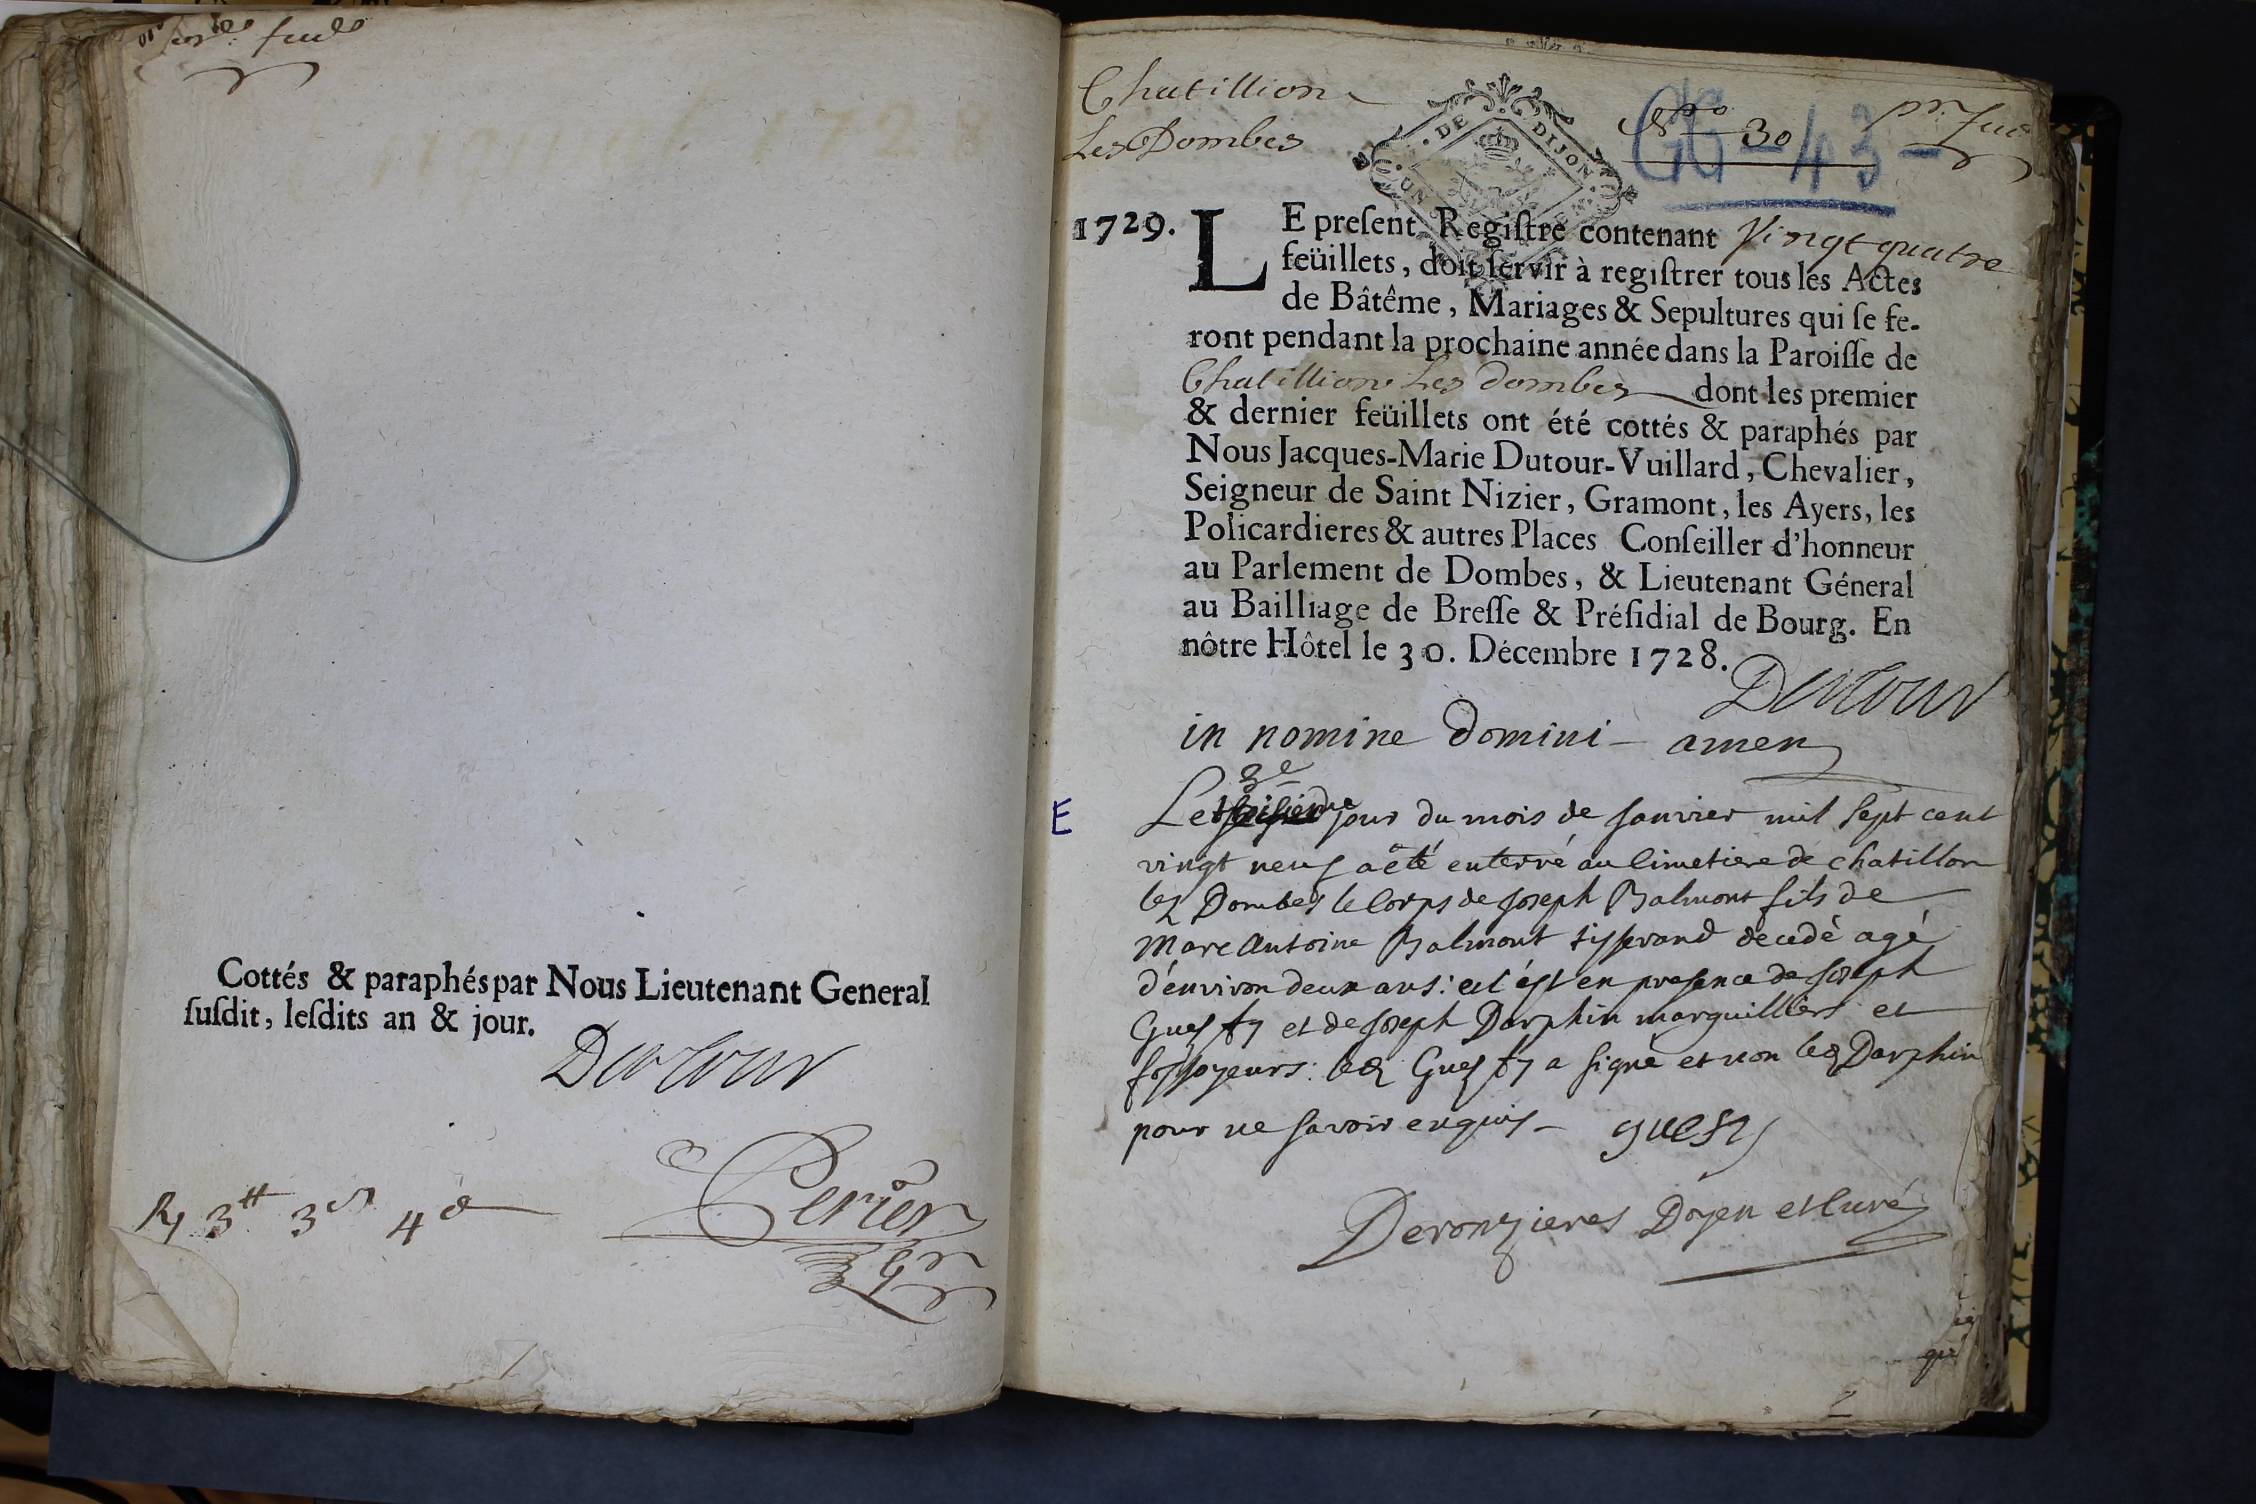 Cottés & paraphés par Nous Lieutenant General
ſuſdit, leſdits an & jour.
Dutour
Perier
Chatillion
Les Dombes
30
GG - 43 -
DE DIJON
1729. LE preſent Regiſtre contenant Vingt quatre
feüillets, doit ſervir à regiſtrer tous les Actes
de Bâtême, Mariages & Sepultures qui ſe fe-
ront pendant la prochaine année dans la Paroiſſe de
Chatillion Les Dombes dont les premier
& dernier feüillets ont été cottés & paraphés par
Nous Jacques-Marie Dutour-Vuillard, Chevalier,
Seigneur de Saint Nizier, Gramont, les Ayers, les
Policardieres & autres Places Conſeiller d'honneur
au Parlement de Dombes, & Lieutenant Géneral
au Bailliage de Breſſe & Préſidial de Bourg. En
nôtre Hôtel le 30. Décembre 1728.
Dutour
in nomine Domini - amen
E
Le jour du mois de janvier mil sept cent
vingt neuf a été enterré au Cimetiere de chatillon
lez Dombes le Corps de joseph Balmont fils de
Marc Antoine Balmont tisserand decedé agé
d'environ deux ans: et c'est en presence de joseph
Guesty et de joseph Darphin marguilliers et
fossoyeurs: led Guesty a signé et non led Darphin
pour ne savoir enquis - guesty
Deronzieres Doyen et Curé